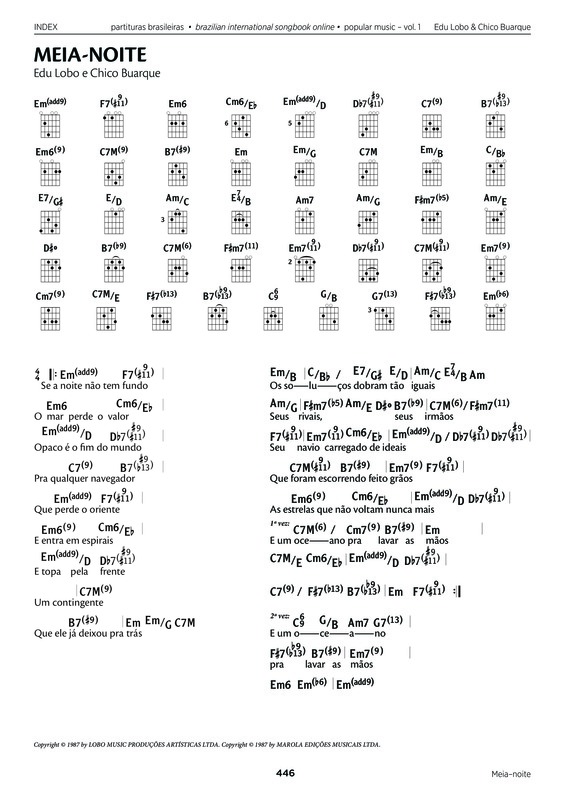 INDEX partituras brasileiras • brazilian international songbook online • popular music – vol. 1 Edu Lobo & Chico Buarque
MEIA-NOITE
Edu Lobo e Chico Buarque
Em(add9) F7(9 ♯11) Em6 Cm6/E♭ Em(add9)/D D♭7(♯9 ♯11) C7(9) B7(♯9 ♭13)
6 5
Em6(9) C7M(9) B7(♯9) Em Em/G C7M Em/B C/B♭
E7/G♯ E/D Am/C E7 4/B Am7 Am/G F♯m7(♭5) Am/E
3
D♯° B7(♭9) C7M(6) F♯m7(11) Em7(9 11) D♭7(9 ♯11) C7M(9 ♯11) Em7(9)
2
Cm7(9) C7M/E F♯7(♭13) B7(♭9 ♭13) C6 9 G/B G7(13) F♯7(♭9 ♭13) Em(♭6)
3
4 4 ‖: Em(add9) F7(9 ♯11) |
Se a noite não tem fundo
Em6 Cm6/E♭ |
O mar perde o valor
Em(add9)/D D♭7(♯9 ♯11) |
Opaco é o fim do mundo
C7(9) B7(♯9 ♭13) |
Pra qualquer navegador
Em(add9) F7(9 ♯11) |
Que perde o oriente
Em6(9) Cm6/E♭ |
E entra em espirais
Em(add9)/D D♭7(♯9 ♯11)
E topa pela frente
| C7M(9)
Um contingente
B7(♯9) | Em Em/G C7M
Que ele já deixou pra trás
Em/B | C/B♭ / E7/G♯ E/D | Am/C E7 4/B Am
Os so—lu—ços dobram tão iguais
Am/G | F♯m7(♭5) Am/E D♯° B7(♭9) | C7M(6) / F♯m7(11)
Seus rivais, seus irmãos
F7(9 ♯11) | Em7(9 11) Cm6/E♭ | Em(add9)/D / D♭7(9 ♯11) D♭7(♯9 ♯11) |
Seu navio carregado de ideais
C7M(9 ♯11) B7(♯9) | Em7(9) F7(9 ♯11) |
Que foram escorrendo feito grãos
Em6(9) Cm6/E♭ | Em(add9)/D D♭7(9 ♯11) |
As estrelas que não voltam nunca mais
1ª vez: C7M(6) / Cm7(9) B7(♯9) | Em |
E um oce—ano pra lavar as mãos
C7M/E Cm6/E♭ | Em(add9)/D D♭7(♯9 ♯11) |
C7(9) / F♯7(♭13) B7(♭9 ♭13) | Em F7(9 ♯11) :‖
2ª vez: C6 9 G/B Am7 G7(13) |
E um o—ce—a—no
F♯7(♭9 ♭13) B7(♯9) | Em7(9) |
pra lavar as mãos
Em6 Em(♭6) | Em(add9)
Copyright © 1987 by LOBO MUSIC PRODUÇÕES ARTÍSTICAS LTDA. Copyright © 1987 by MAROLA EDIÇÕES MUSICAIS LTDA.
446
Meia-noite